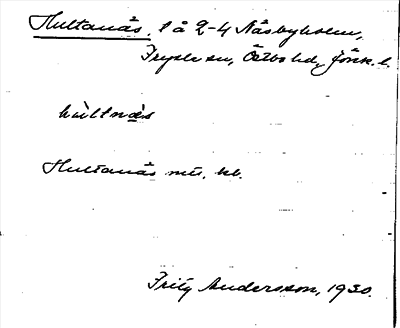 Hultanäs, l å 2-4 Näsbyholm,
Fryele sn, Östbo hd, Jönk. l.
hùltnäs
Hultanäs mtl. kb.
Fritz Andersson, 1930.